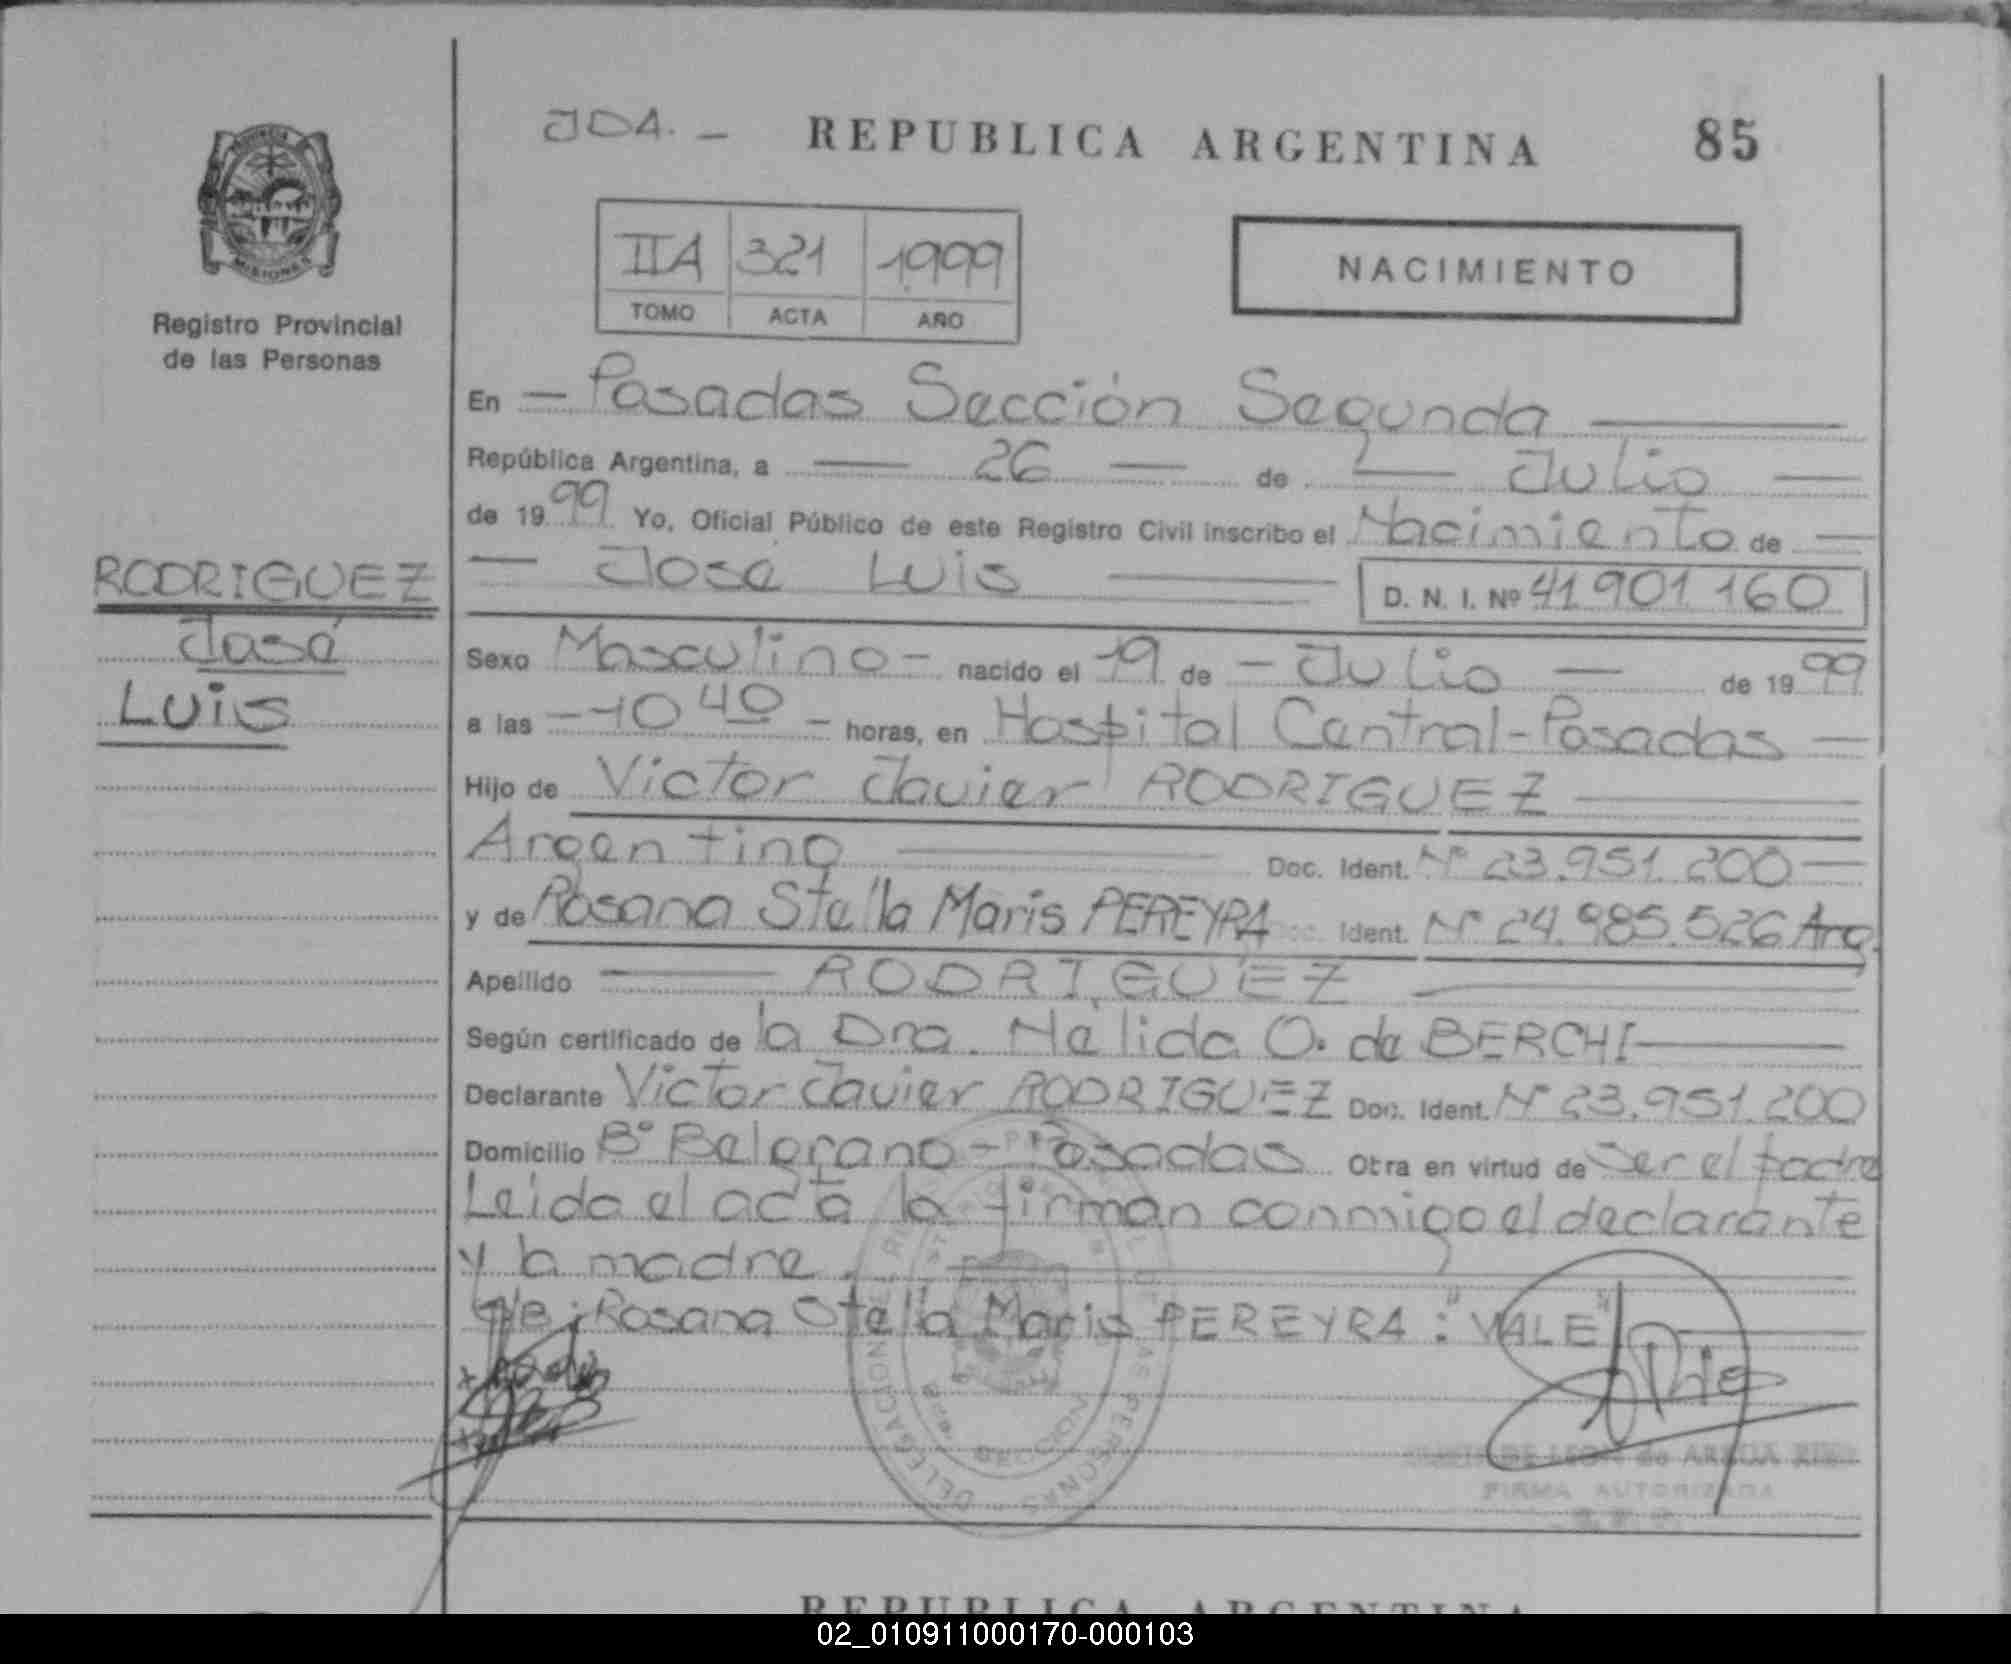 JDA. - REPUBLICA ARGENTINA 85
MISIONES
Registro Provincial
de las Personas
IIA 321 1.999
TOMO ACTA AÑO
NACIMIENTO
En - Posadas Sección Segunda
República Argentina, a - 26 - de - Julio -
de 1999 Yo, Oficial Público de este Registro Civil inscribo el Nacimiento de -
- José Luis
D. N. I. Nº 41.901.160
RODRIGUEZ
José
Luis
Sexo Masculino - nacido el 19 de - Julio - de 1999
a las - 10 40 - horas, en Hospital Central - Posadas -
Hijo de Victor Javier RODRIGUEZ
Argentino Doc. Ident. Nº 23.951.200 -
y de Rosana Stella Maris PEREYRA Doc. Ident. Nº 24.985.526 Arg.
Apellido RODRIGUEZ
Según certificado de la Dra. Nélida O. de BERCHI
Declarante Victor Javier RODRIGUEZ Doc. Ident. Nº 23.951.200
Domicilio Bº Belgrano - Posadas Obra en virtud de ser el padre
Leida el acta la firman conmigo el declarante
y la madre.
e/e: Rosana Stella Maris PEREYRA: "VALE"
DELEGACIONES PERSONAS
SECCION
DE LEON de
FIRMA AUTORIZADA
REPUBLICA ARGENTINA
02_010911000170-000103